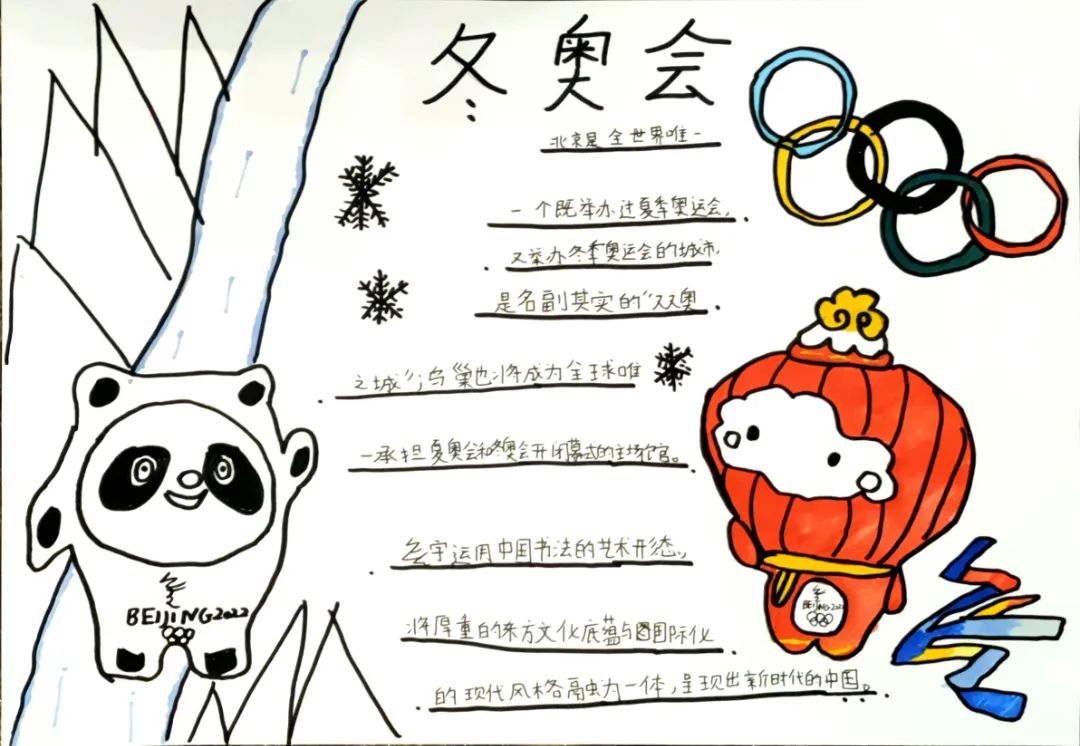 冬奥会
北京是全世界唯一
一个既举办过夏季奥运会,
又举办冬季奥运会的城市,
是名副其实的“双奥
之城”;鸟巢也将成为全球唯
一承担夏奥会和冬奥会开闭幕式的主场馆。
冬字运用中国书法的艺术形态,
将厚重的东方文化底蕴与国际化
的现代风格融为一体,呈现出新时代的中国。
BEIJING2022
BEIJING2022